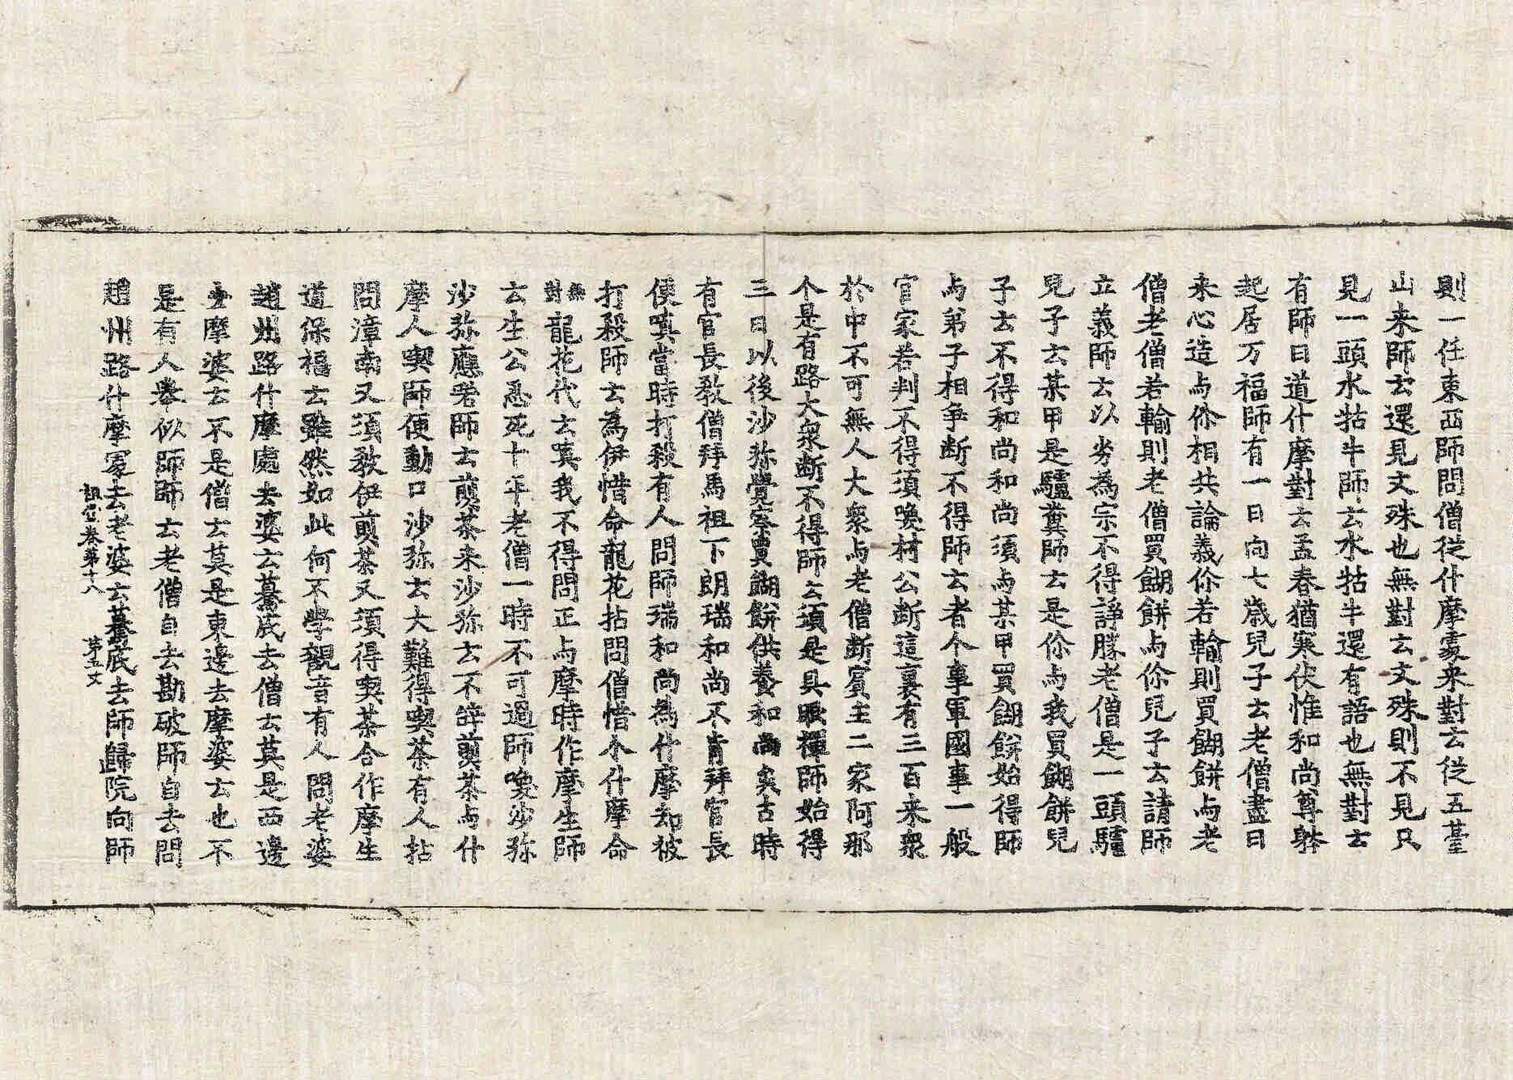 則一任東西師問僧從什摩處來對云從五臺
山来師云還見文殊也無對云文殊則不見只
見一頭水牯牛師云水牯牛還有語也無對云
有師曰道什摩對云孟春猶寒伏惟和尚尊躰
起居万福師有一日向七歲兒子云老僧盡日
来心造与你相共論義你若輸則買餬餅与老
僧老僧若輸則老僧買餬餅与你兒子云請師
立義師云以劣為宗不得諍勝老僧是一頭驢
兒子云某甲是驢糞師云是你与我買餬餅兒
子云不得和尚和尚須与某甲買餬餅始得師
与弟子相争断不得師云者个事軍國事一般
官家若判不得須喚村公断這裏有三百来眾
於中不可無人大衆与老僧断賓主二家阿那
个是有路大衆断不得師云須是具眼禪師始得
三日以後沙弥覺察買餬餅供養和尚矣古時
有官長教僧拜馬祖下朗瑞和尚不肯拜官長
便嗔當時打殺有人問師瑞和尚為什摩却被
打殺師云為伊惜命龍花拈問僧惜个什摩命
無對龍花代云嗔我不得問正与摩時作摩生師
云生公忍死十年老僧一時不可過師喚沙弥
沙弥應喏師云煎茶来沙弥云不辞煎茶与什
摩人喫師便動口沙弥云大難得喫茶有人拈
問漳南又須教伊煎茶又須得喫茶合作摩生
道保福云雖然如此何不學觀音有人問老婆
趙州路什摩處去婆云驀底去僧云莫是西邊
去摩婆云不是僧云莫是東邊去摩婆云也不
是有人舉似師師云老僧自去勘破師自去問
趙州路什摩處去老婆云驀底去師歸院向師
祖堂卷第十八 第五丈